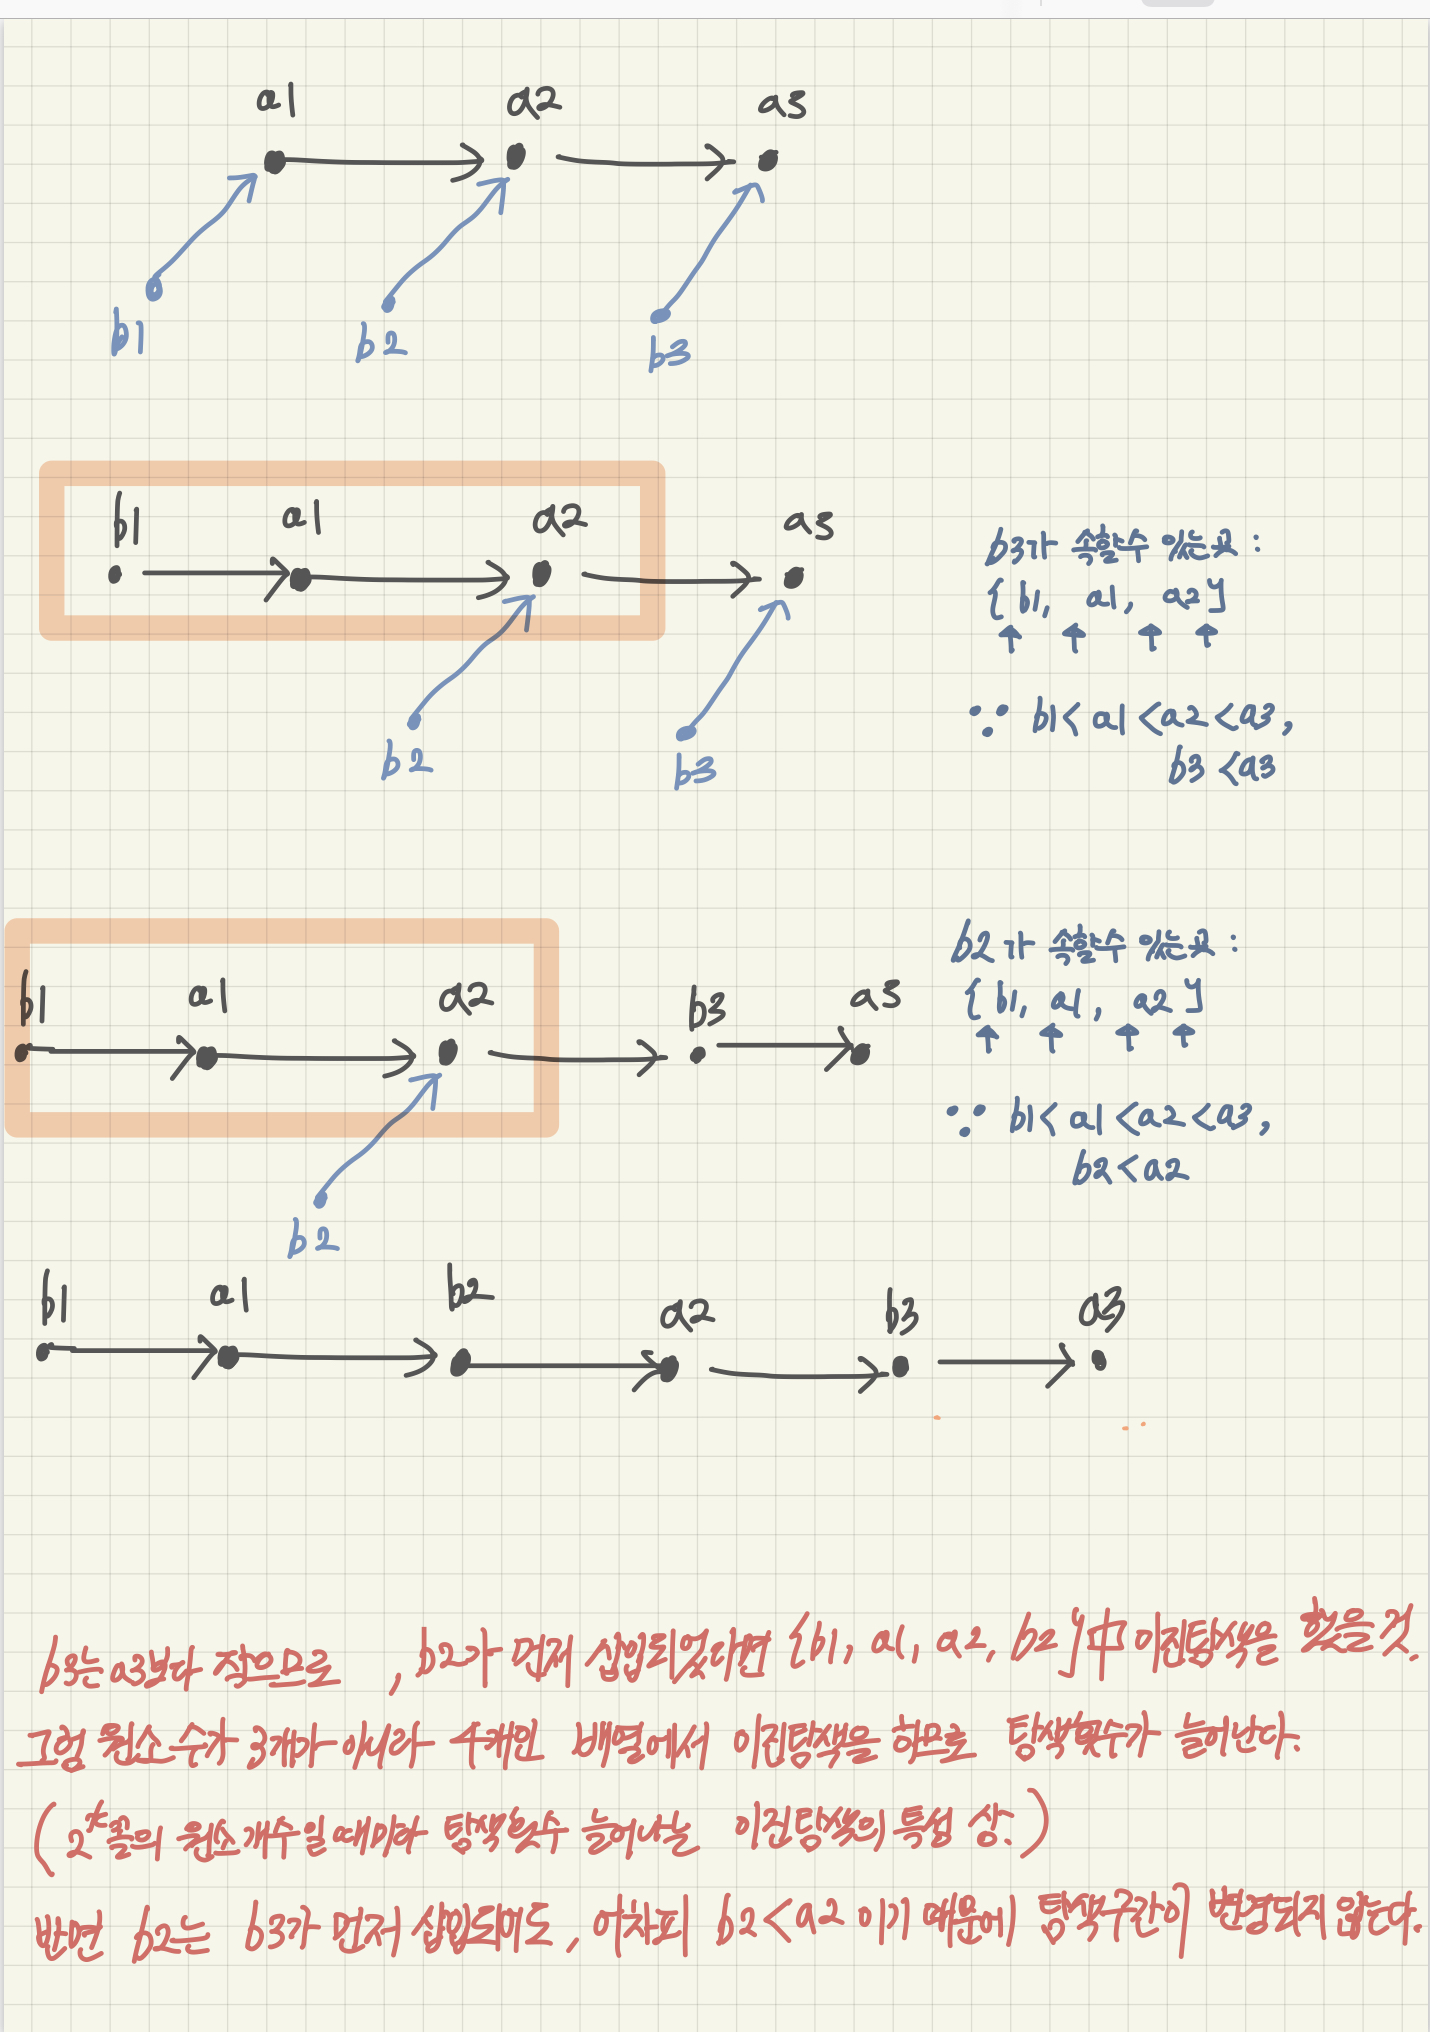 a1 a2 a3
b1 b2 b3
b1 a1 a2 a3
b2 b3
b3가 속할수 있는곳:
{b1, a1, a2}
∵ b1<a1<a2<a3,
b3<a3
b1 a1 a2 b3 a3
b2
b2가 속할수 있는곳:
{b1, a1, a2}
∵ b1<a1<a2<a3,
b2<a2
b1 a1 b2 a2 b3 a3
b3는 a3보다 작으므로, b2가 먼저 삽입되었다면 {b1, a1, a2, b2}中 이진탐색을 했을것.
그럼 원소 수가 3개가 아니라 4개인 배열에서 이진탐색을 하므로 탐색횟수가 늘어난다.
(2^k 꼴의 원소개수일때마다 탐색횟수 늘어나는 이진탐색의 특성 상.)
반면 b2는 b3가 먼저 삽입되어도, 어차피 b2<a2 이기 때문에 탐색구간이 변경되지 않는다.